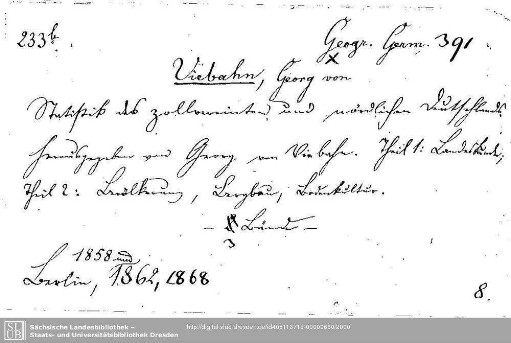 233b. Geogr. Germ. 391.
x
Viebahn, Georg von
Statistik des zollvereinten und nördlichen Deutschlands
herausgegeben von Georg von Viebahn. Theil 1: Landeskunde;
Theil 2: Bevölkerung, Bergbau, Bodenkultur.
— Bände —
3
1858 und
Berlin, 1862, 1868
8.
Sächsische Landesbibliothek –
Staats- und Universitätsbibliothek Dresden
SLUB